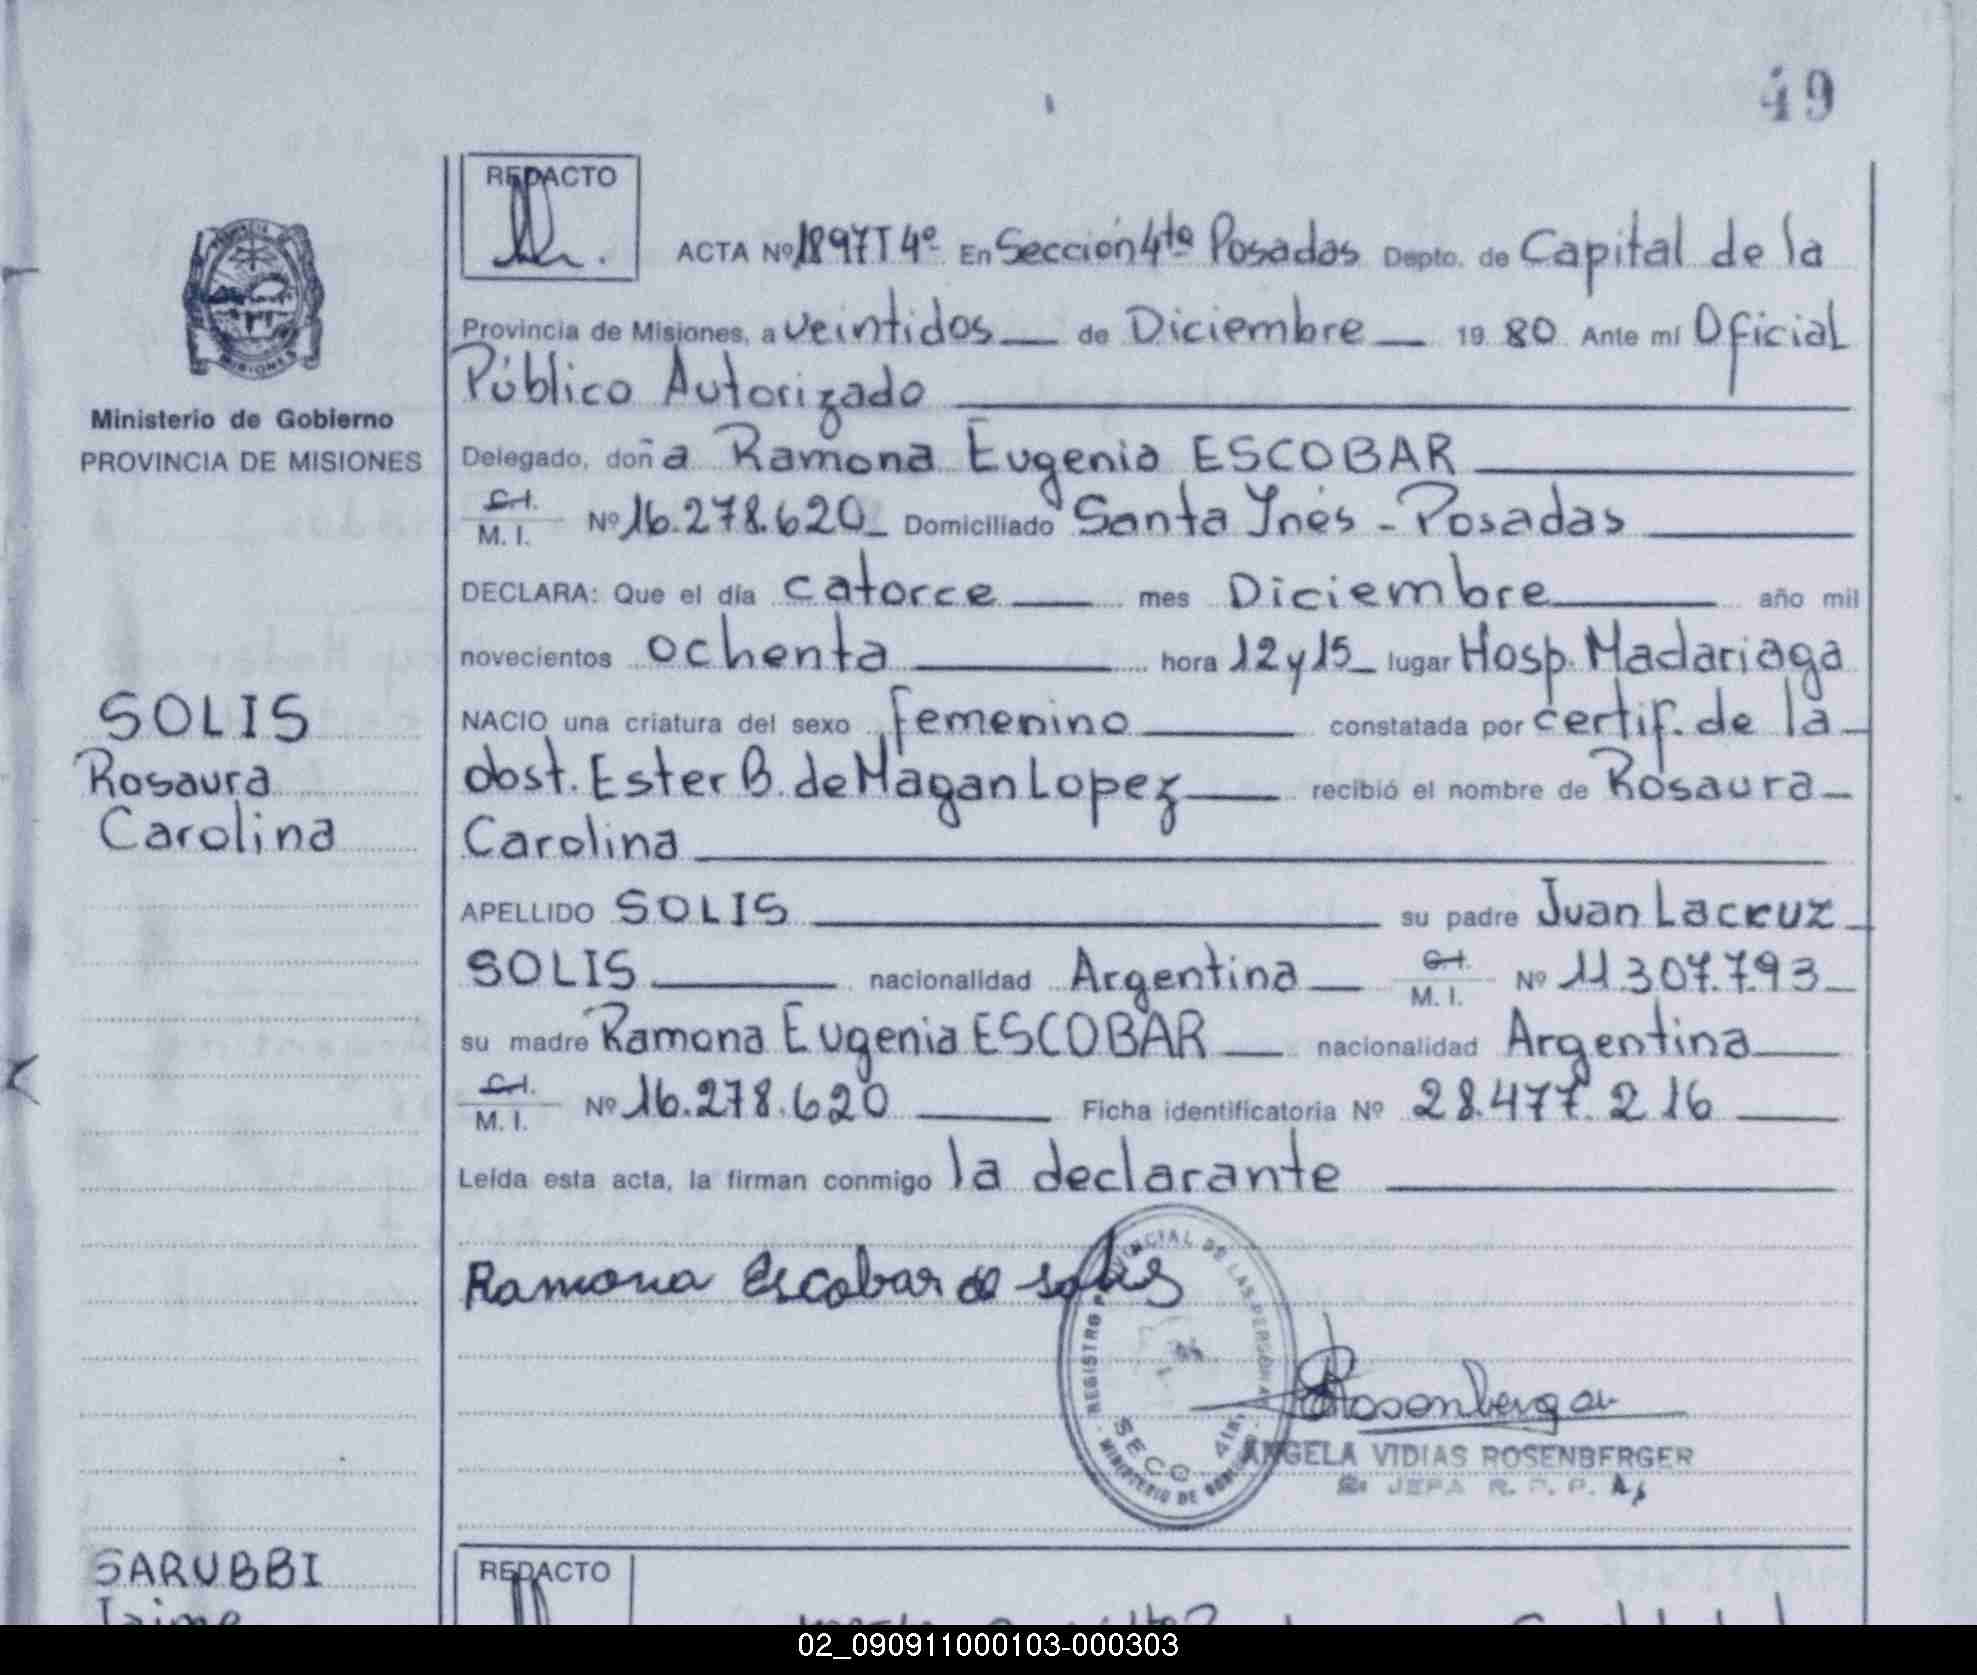 49
REDACTO
ACTA Nº 1897 T 4º En Sección 4ta Posadas Depto. de Capital de la
Provincia de Misiones, a veintidos de Diciembre 19 80 Ante mí Oficial
Público Autorizado
Ministerio de Gobierno
PROVINCIA DE MISIONES
Delegado, doña Ramona Eugenia ESCOBAR
C.I.
M. I. Nº 16.278.620 Domiciliado Santa Inés - Posadas
DECLARA: Que el día catorce mes Diciembre año mil
novecientos ochenta hora 12 y 15 lugar Hosp. Madariaga
SOLIS
Rosaura
Carolina
NACIO una criatura del sexo femenino constatada por certif. de la
obst. Ester B. de Magan Lopez recibió el nombre de Rosaura
Carolina
APELLIDO SOLIS su padre Juan Lacruz
SOLIS nacionalidad Argentina C.I. M. I. Nº 11.307.793
su madre Ramona Eugenia ESCOBAR nacionalidad Argentina
C.I.
M. I. Nº 16.278.620 Ficha identificatoria Nº 28.477.216
Leída esta acta, la firman conmigo la declarante
Ramona Escobar de Solis
REGISTRO PROVINCIAL DE LAS PERSONAS
SECC. 4ta.
MINISTERIO DE GOBIERNO
Rosenberger
ANGELA VIDIAS ROSENBERGER
JEFA R. P. P.
SARUBBI
Jaime
REDACTO
02_090911000103-000303